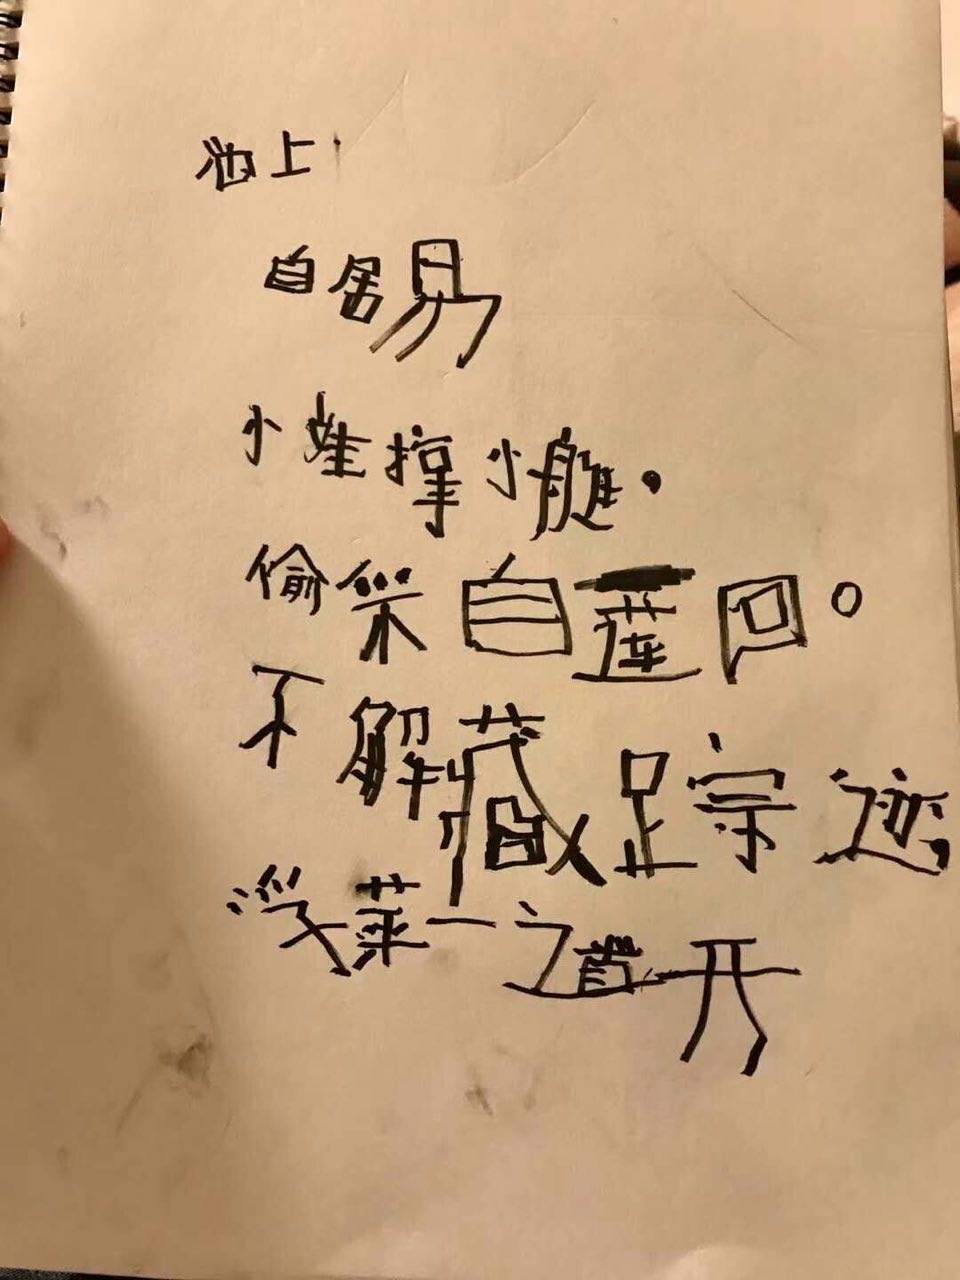 池上
白居易
小娃撑小艇。
偷采白莲回。
不解藏足宗迹
浮萍一之道开